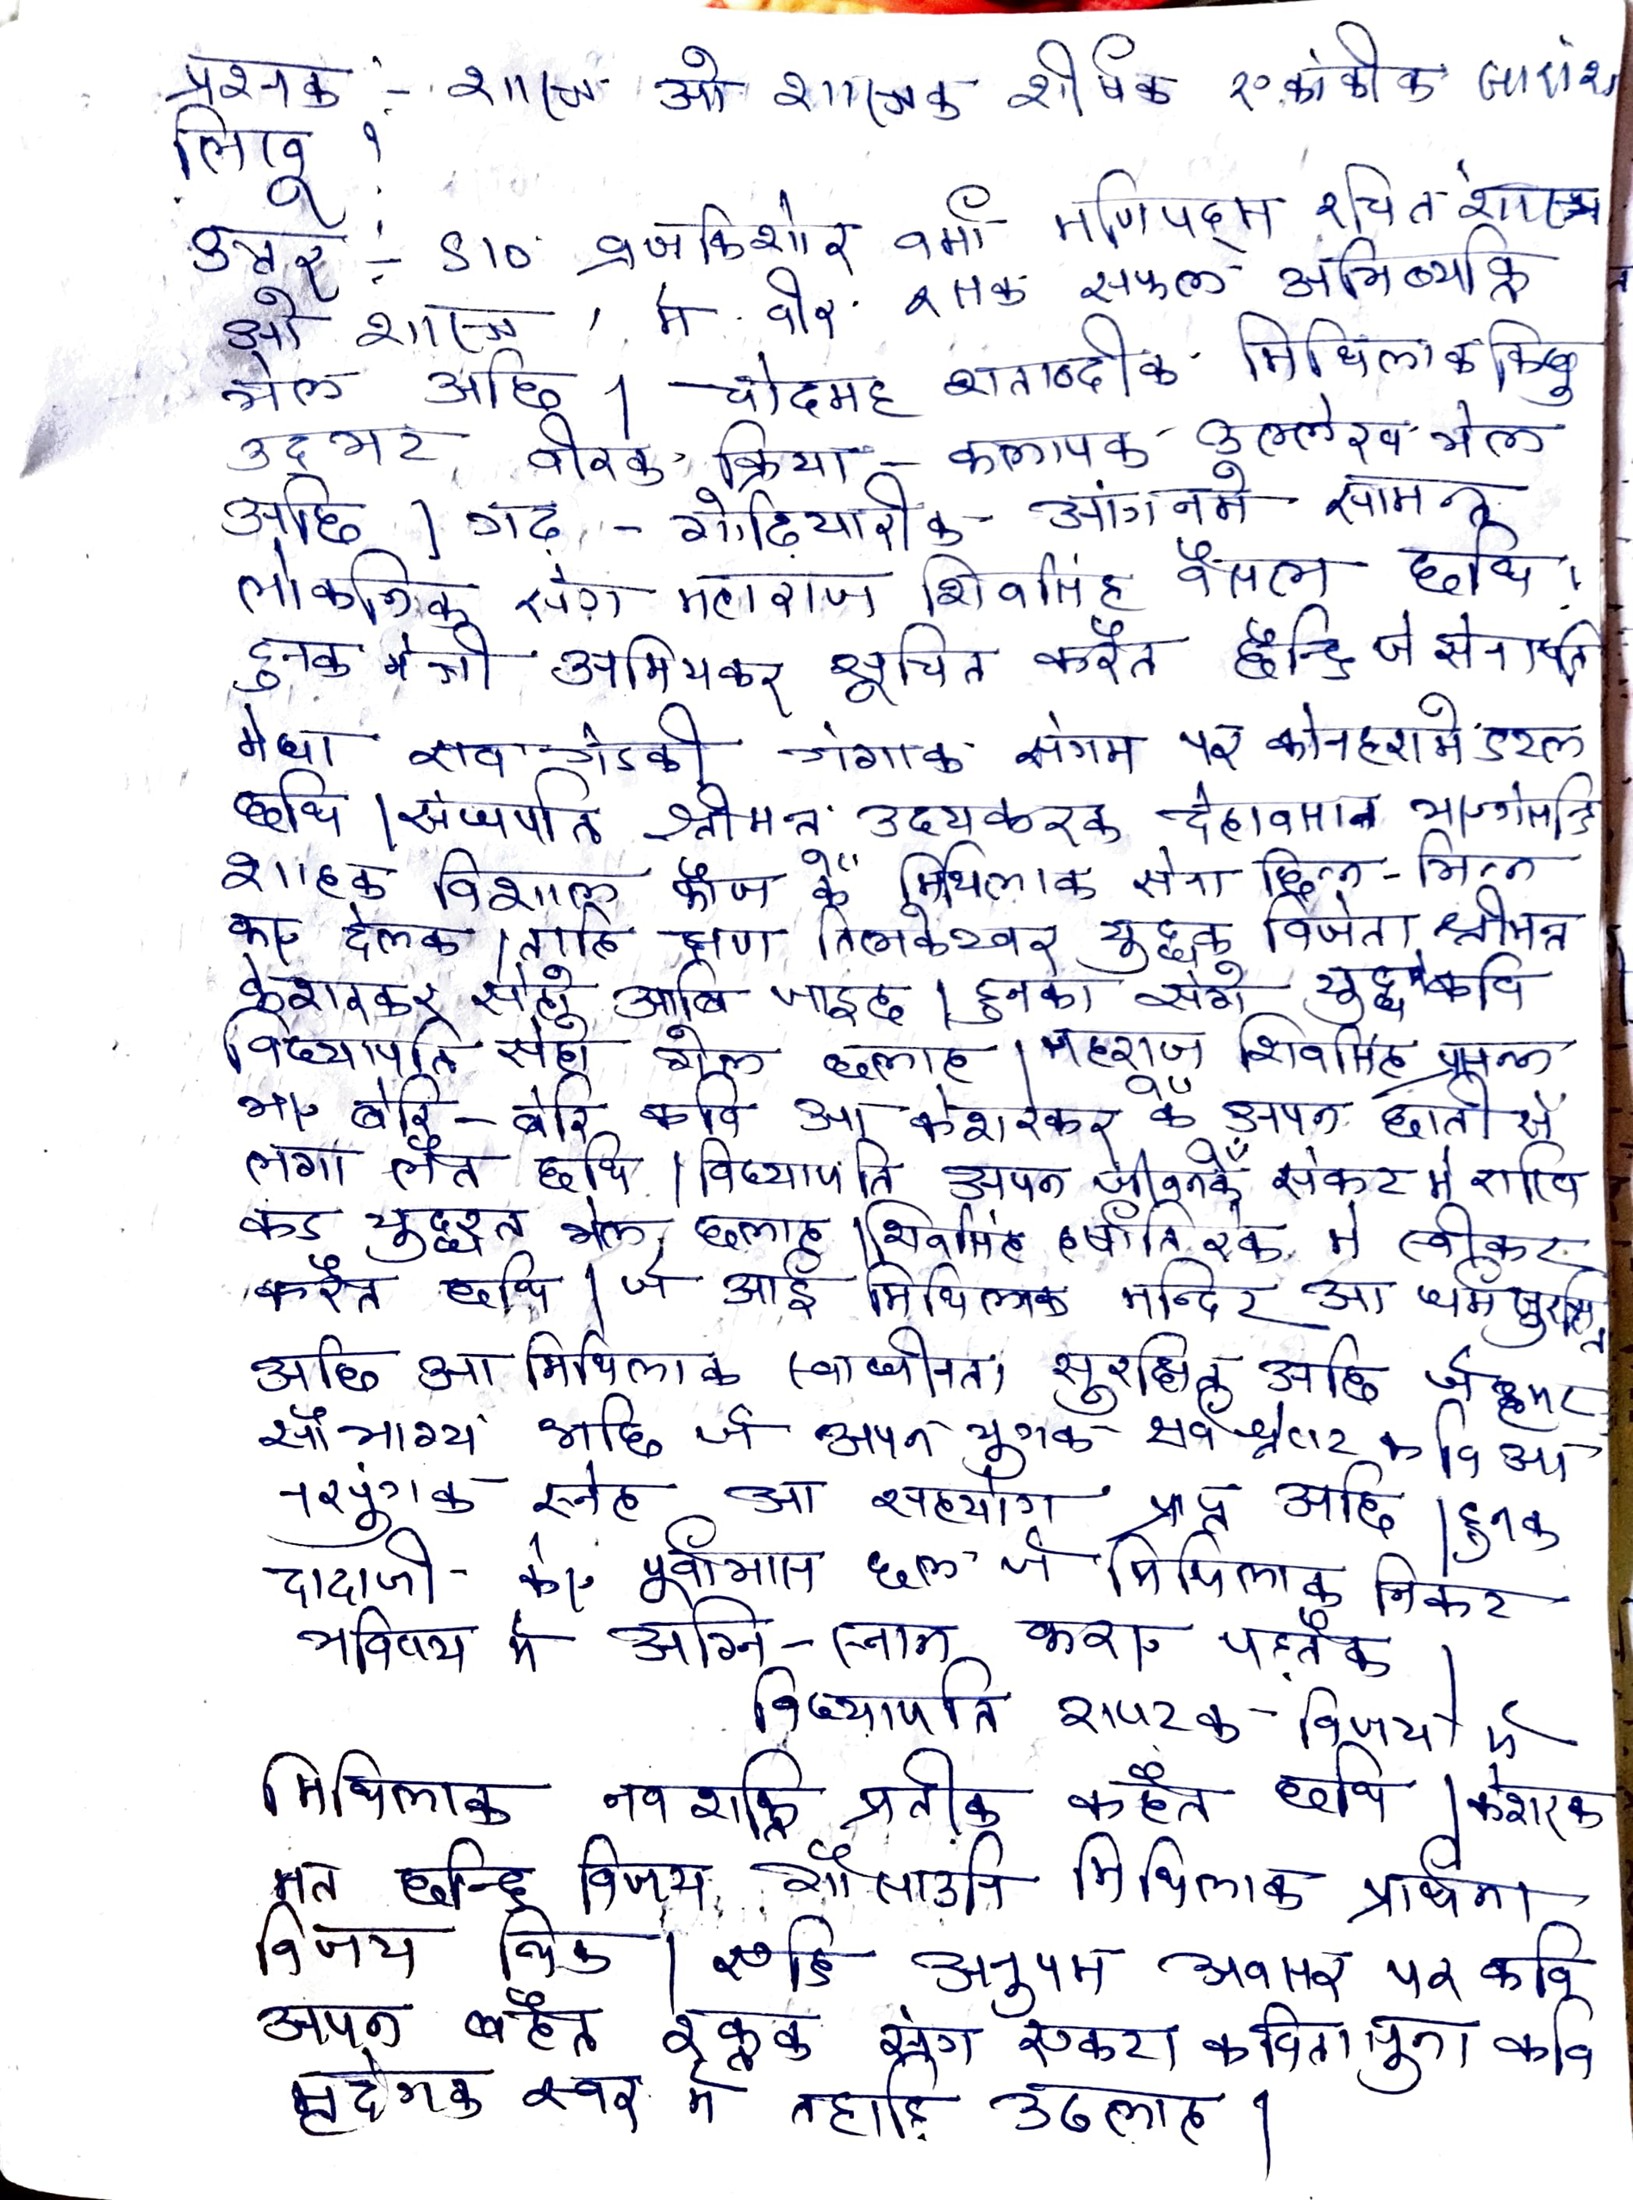 प्रश्नक :- शास्त्र ओ शास्त्रक शीर्षक एकांकीक सारांश
लिखू ?
उत्तर :- डा० व्रजकिशोर वर्मा मणिपद्म रचित शास्त्र
ओ शास्त्र ' मे वीर रसक सफल अभिव्यक्ति
भेल अछि । चौदमह शताब्दीक मिथिलाक किछु
उद्भट वीरक क्रिया - कलापक उल्लेख भेल
अछि । गढ़ - गोढ़ियारीक आंगनमे सामन्त
लोकनिक संग महाराज शिवसिंह वैसल छथि ।
हुनक मंत्री अमियकर सूचित करैत छैन्हि जे सेनापति
मेघा राव गंडकी गंगाक संगम पर कोनहरामे डटल
छथि । सेनापति श्रीमन्त उदयकरक देहावसान
शाहक विशाल फौज कें मिथिलाक सेना छिन्न - भिन्न
कए देलक । ताहि क्षण तिलकेश्वर युद्धक विजेता श्रीमन्त
केशरकर सेहो आबि जाइछ । हुनका संगे युद्ध कवि
विद्यापति सेहो गेल छलाह । महराज शिवसिंह प्रसन्न
भए बेरि - बेरि कवि आ केशरकर कें अपन छाती सँ
लगा लैत छथि । विद्यापति अपन जीवनकें संकट मे राखि
कड युद्धरत भेल छलाह । शिवसिंह हर्षातिरेक मे स्वीकार
करैत छथि । जे आई मिथिलाक मन्दिर आ धर्म सुरक्षित
अछि आ मिथिलाक स्वाधीनता सुरक्षित अछि जे हमर
सौभाग्य अछि जे अपन युगक सर्वश्रेष्ठ कवि आ
नरपुंगक स्नेह आ सहयोग प्राप्त अछि । हुनक
दादाजी - कए पूर्वाभास छल जे मिथिलाक निकट
भविष्य मे अग्नि - स्नान करए पड़तैक ।
विद्यापति विजय मे
मिथिलाक नव शक्ति प्रतीक कहैत छथि । केशरक
मत छन्हि विजय गोसाउनि मिथिलाक प्रार्थना
विजय थिक । एहि अनुपम अवसर पर कवि
अपन संग एकटा कविता सुना कवि
मृदंगक स्वर मे तहाहि उठलाह ।